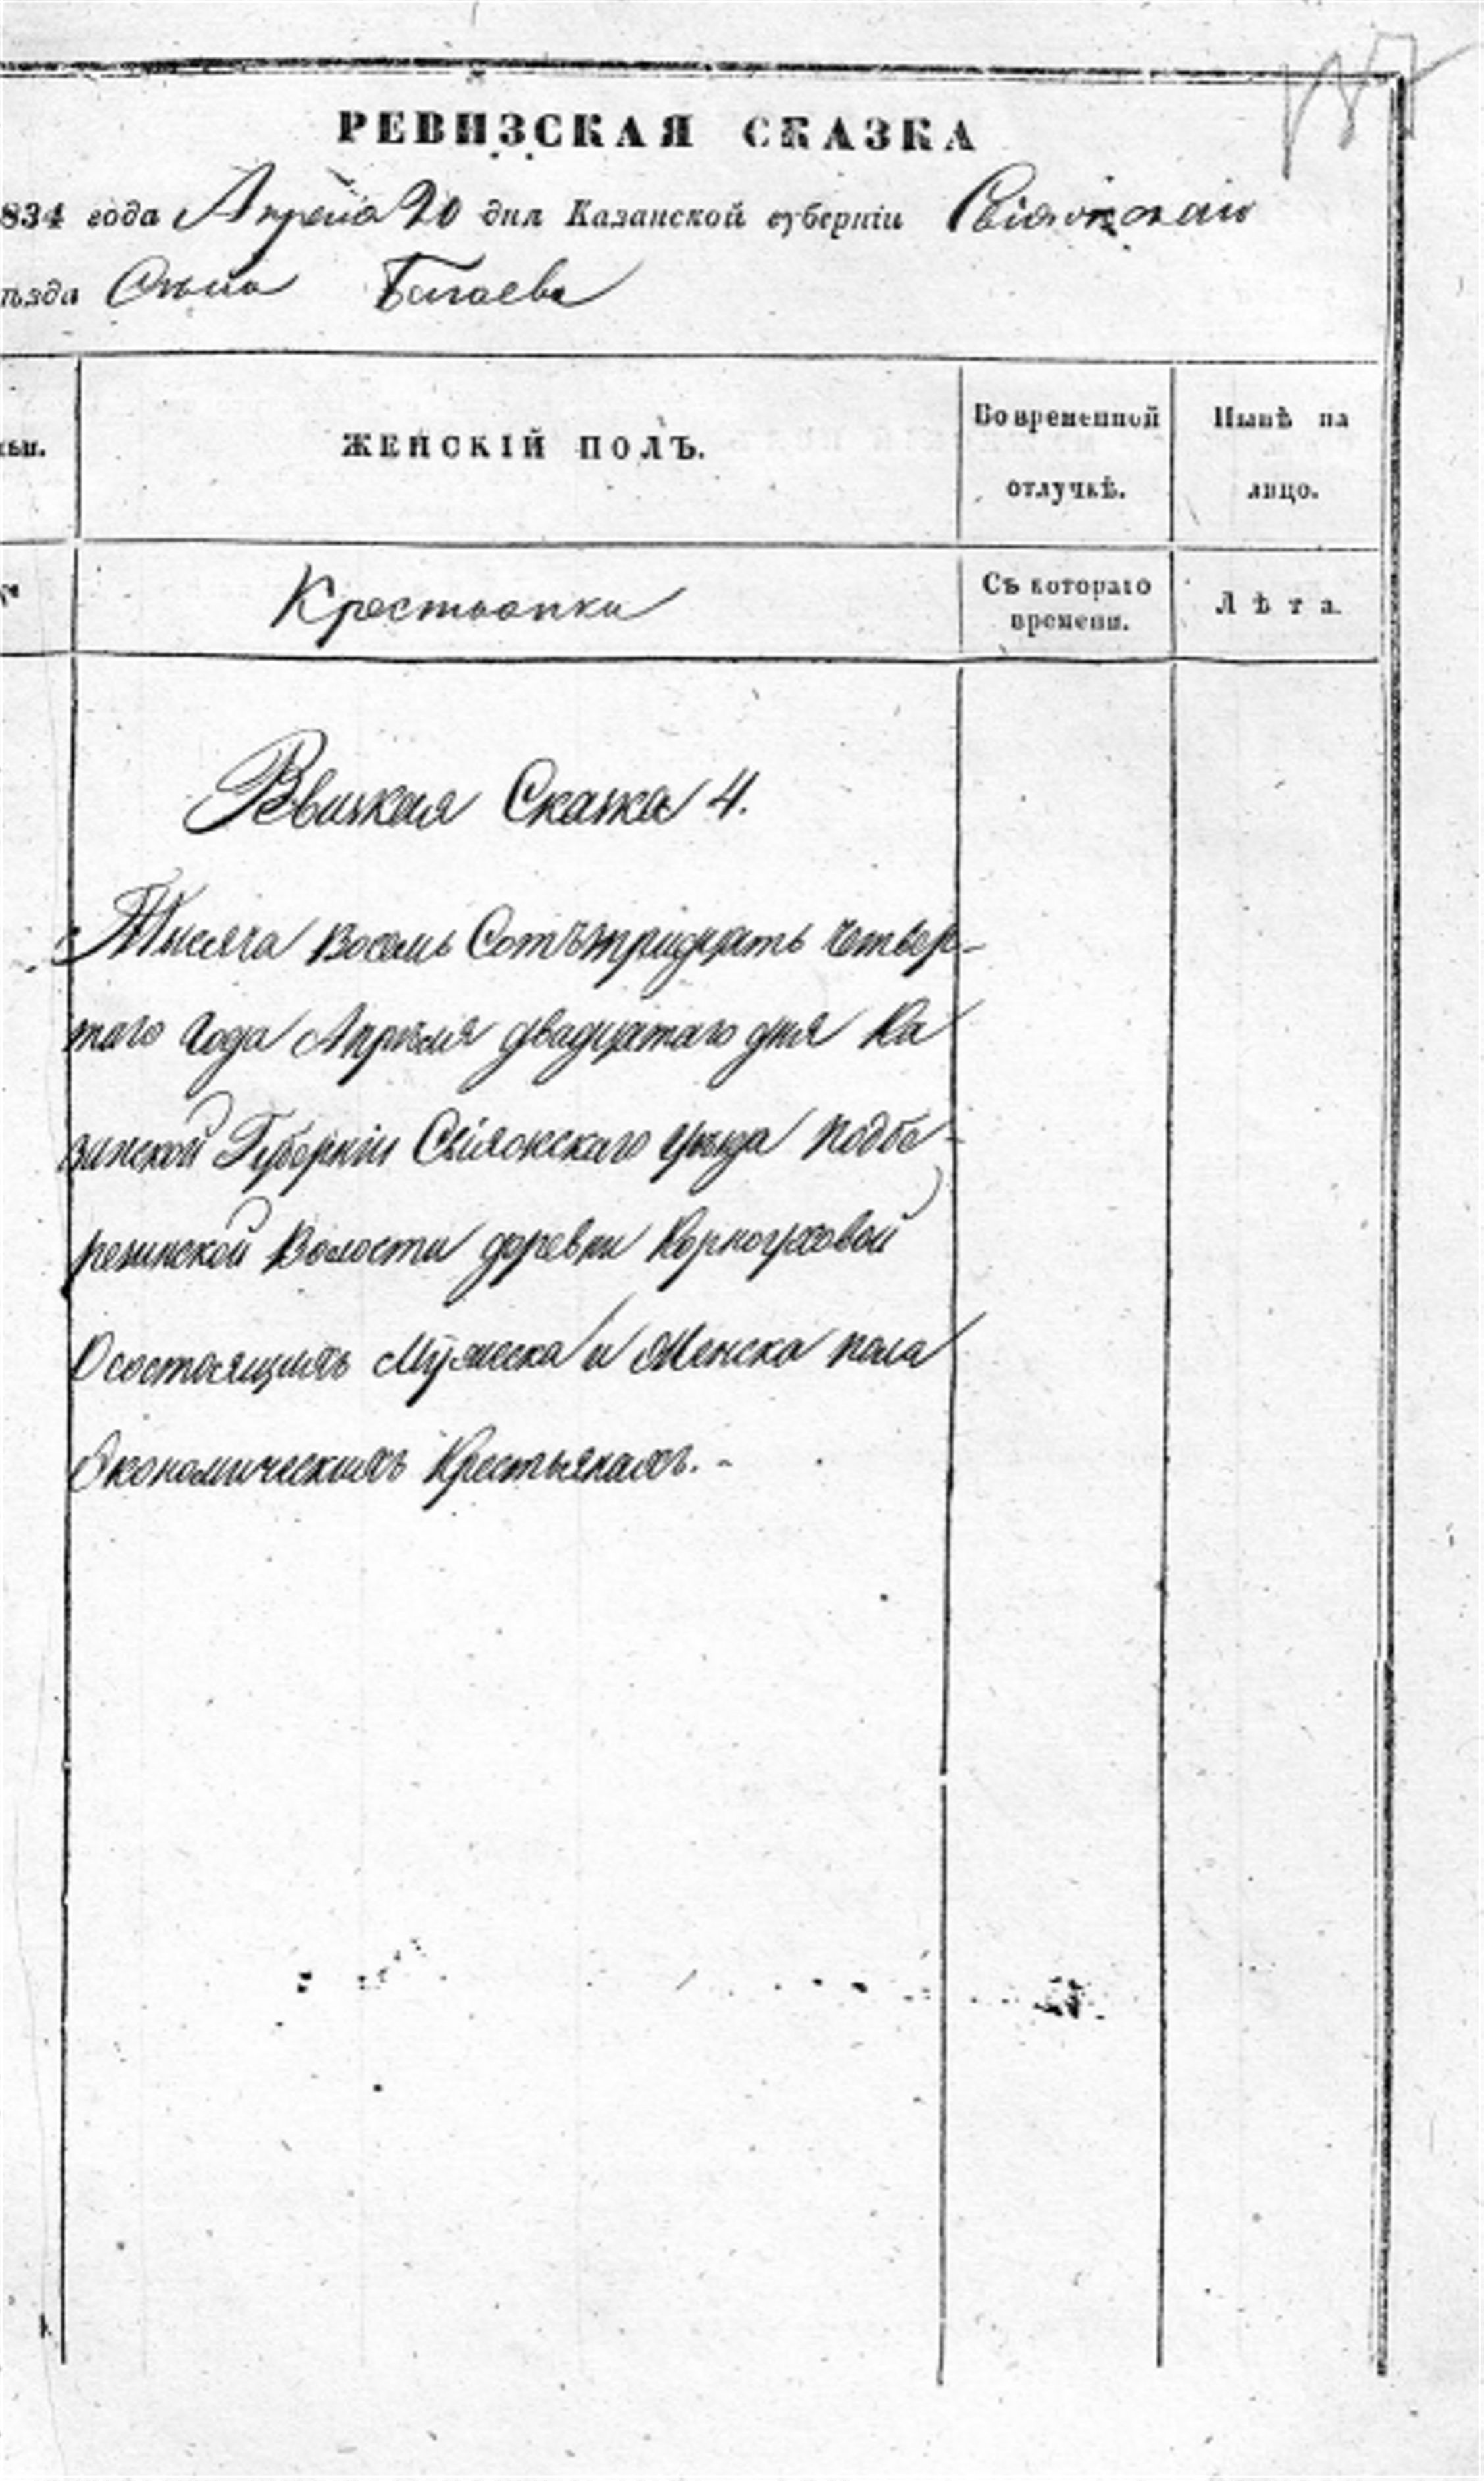 187
РЕВИЗСКАЯ СКАЗКА
834 года Апреля 20 дня Казанской губерніи Свіяжскаго
ѣзда Села
ЖЕНСКІЙ ПОЛЪ.
Во временной
отлучкѣ.
Нынѣ на
лицо.
Крестьянки
Съ котораго
времени.
Лѣта.
Сказка 4.
Тысяча восемь Сотъ тридцать четвер-
таго года Апрѣля двадцатаго дня Ка
занской Губерніи Свіяжскаго уѣзда подбе-
резинской Волости деревни
О состоящихъ Мужеска и Женска пола
Экономическихъ Крестьянахъ.-